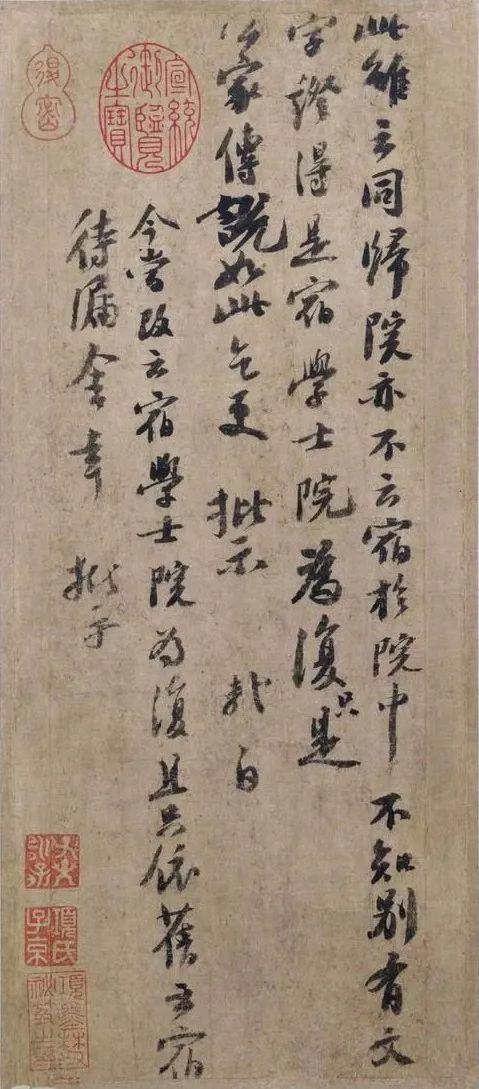 此雖云同歸院亦不云宿於院中不知別有文
字證得是宿學士院為復只是
家傳説如此乞更 批示 白
今當改云宿學士院為復且只依舊云宿
待漏舍幸 批示
宣統御覽之寶
項氏子京